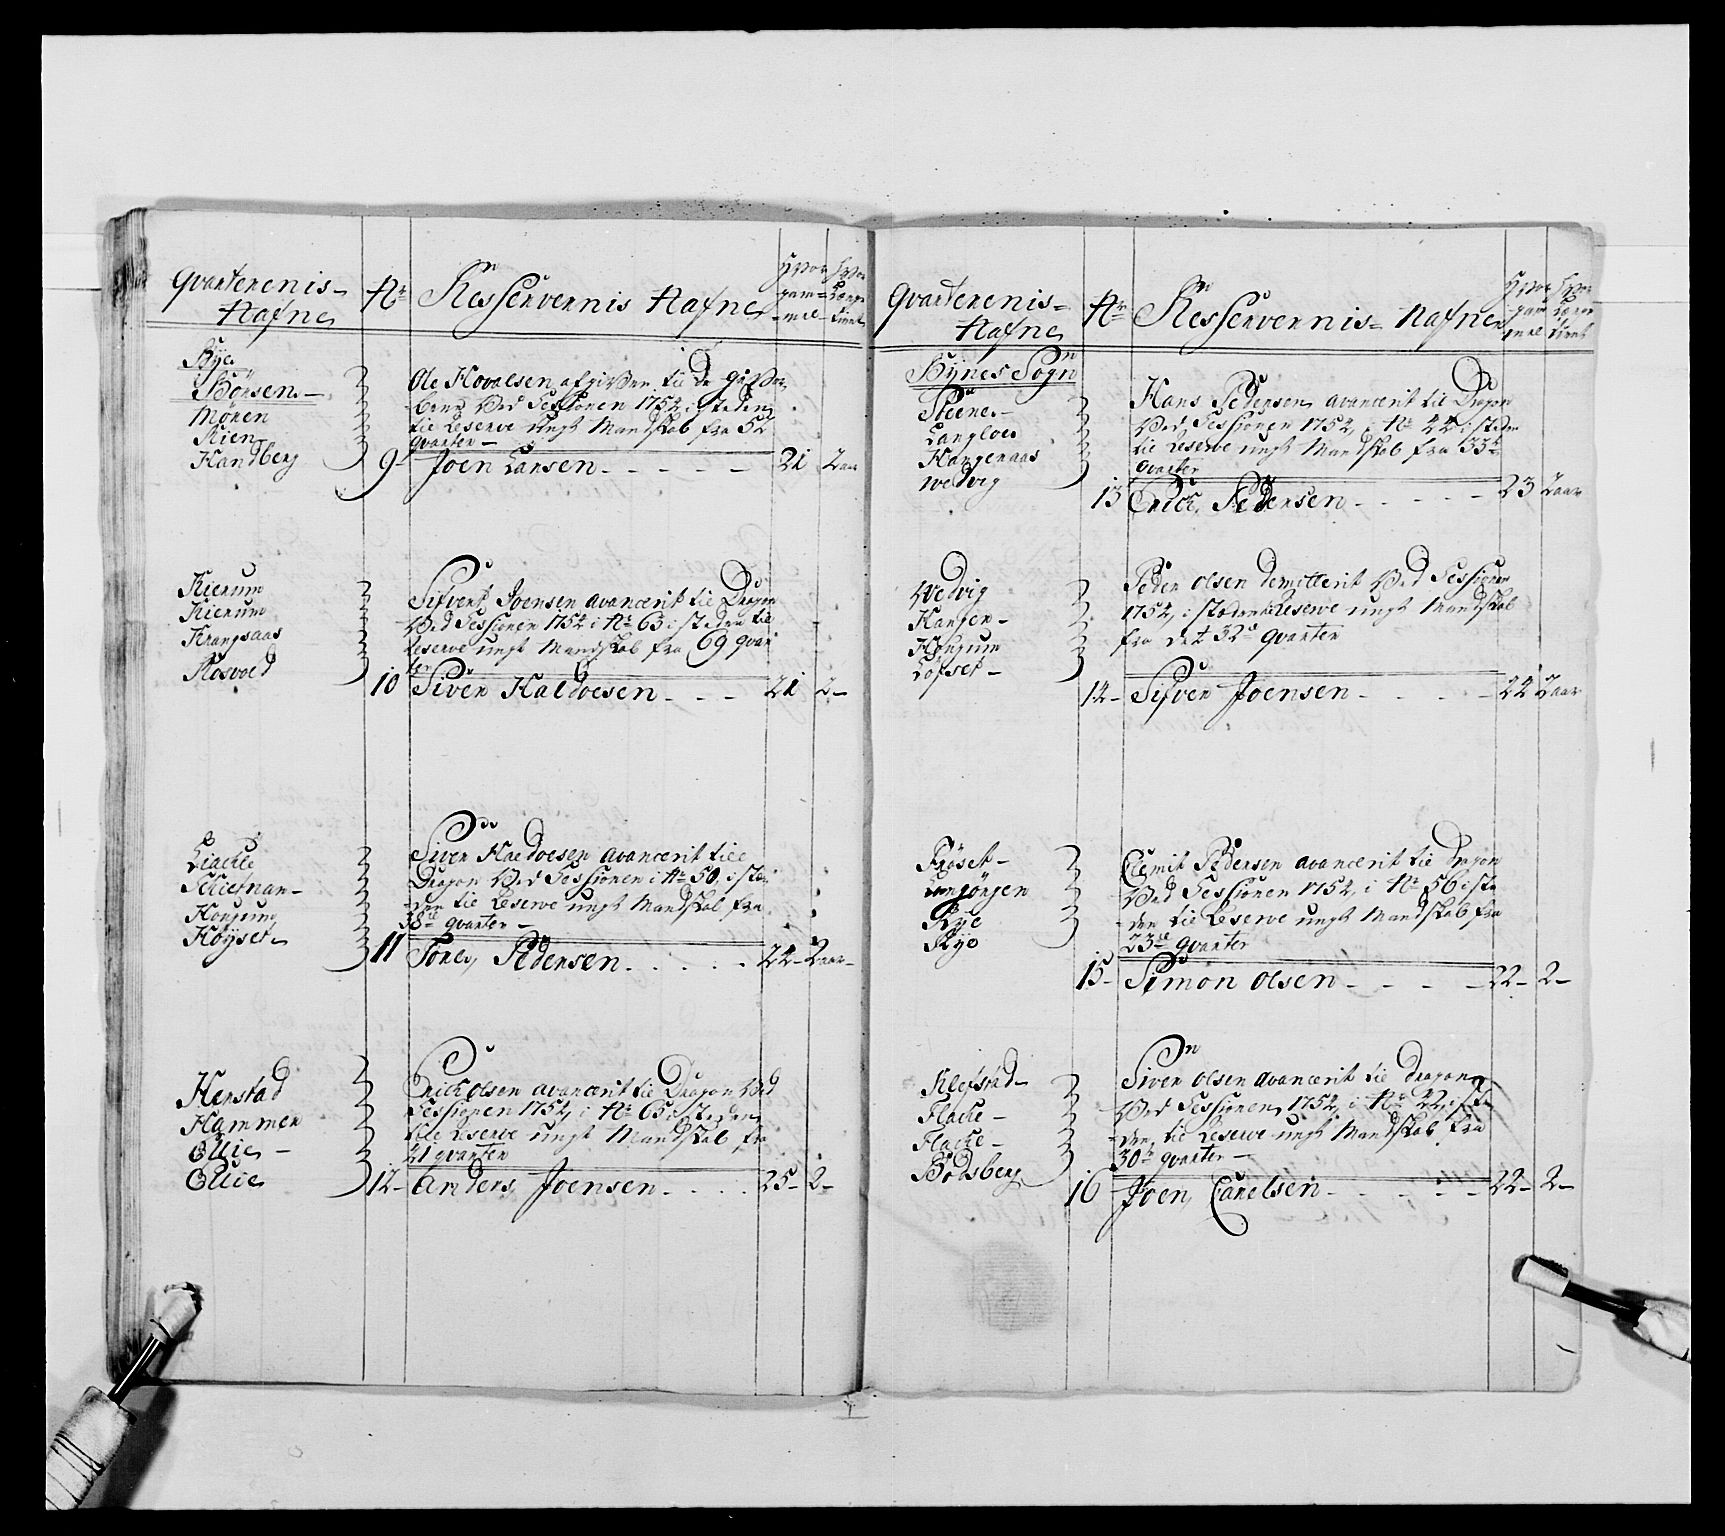 Qvarterernis-
Nafne
No
Resservernis Nafne
Hvor
gam=
-mel-
Hvor
Længe
tient
Bye
Börsen-
Mören
Rien
Handberg
Ole Hovalsen afgiven til de geVor,
bene Ved Sessionen 1754, i steden
til Reserve ungt Mandskab fra 52
qvarter-
9- Joen Larsen - - - - - 21 2 aar
Kierum
Kierum
Krangsaas
Rosvold
Sifvert Joensen avancerit til Dragon
Ved Sessionen 1754 i No 63 i steden til
Reserve ungt Mandskab fra 69 qvar
ter
10 Siver Haldoesen - - - 21 2-
Schiefnan-
Hongum
Höyset-
Siver Haldoesen avancerit till
Dragon Ved Sessionen i No 50, i ste,
-den til Reserve ungt Mandskab fra
38te qvarter-
11 Tores Pedersen - - - - 24- 2 aar-
Herstad
Hammer
Ellie-
Ellie
Erich Olsen avancerit til Dragon Ved
Sessionen 1754, i No 65 i steden
till Reserve ungt Mandskab fra
41 qvarter
12- Anders Joensen - - - - 25- 2-
Qvarterernis=
Nafne
No
Resservernis= Nafne
Hvor
gam
mel
Hvor
Længe
tient
Bynes Sogn
Steene-
Langloe
Hangeraas
Wedvig
Hans Pedersen avancerit til Dragon
Ved Sessionen 1754, i No 44 i steden
til Reserve ungt Mandskab fra 33te
qvarter
13 Erich Pedersen - - - - - 23 2 aar
Wedvig
Hanger-
Hongum
Löfset-
Peder Olsen demitterit Ved Sessionen
1754, i steden til Reserve ungt Mandskab
fra det 32te qvarter
14- Sifver Joensen - - - - - 24 2 aar
Fröset-
Langörgen
Rye
Rye
Clemit Pedersen avancerit til Dragon
Ved Sessionen 1754, i No 56 i ste
-den til Reserve ungt Mandskab fra
23te qvarter
15- Simon Olsen - - - - - 22- 2-
Klefstad-
Flache-
Flache-
Bodsberg
Siver Olsen avancerit til Dragon
Ved Sessionen 1754, i No 22, i ste
-den, til Reserve ungt Mandskab fra
30te qvarter-
16 Joen Carelsen - - - - - 22- 2-